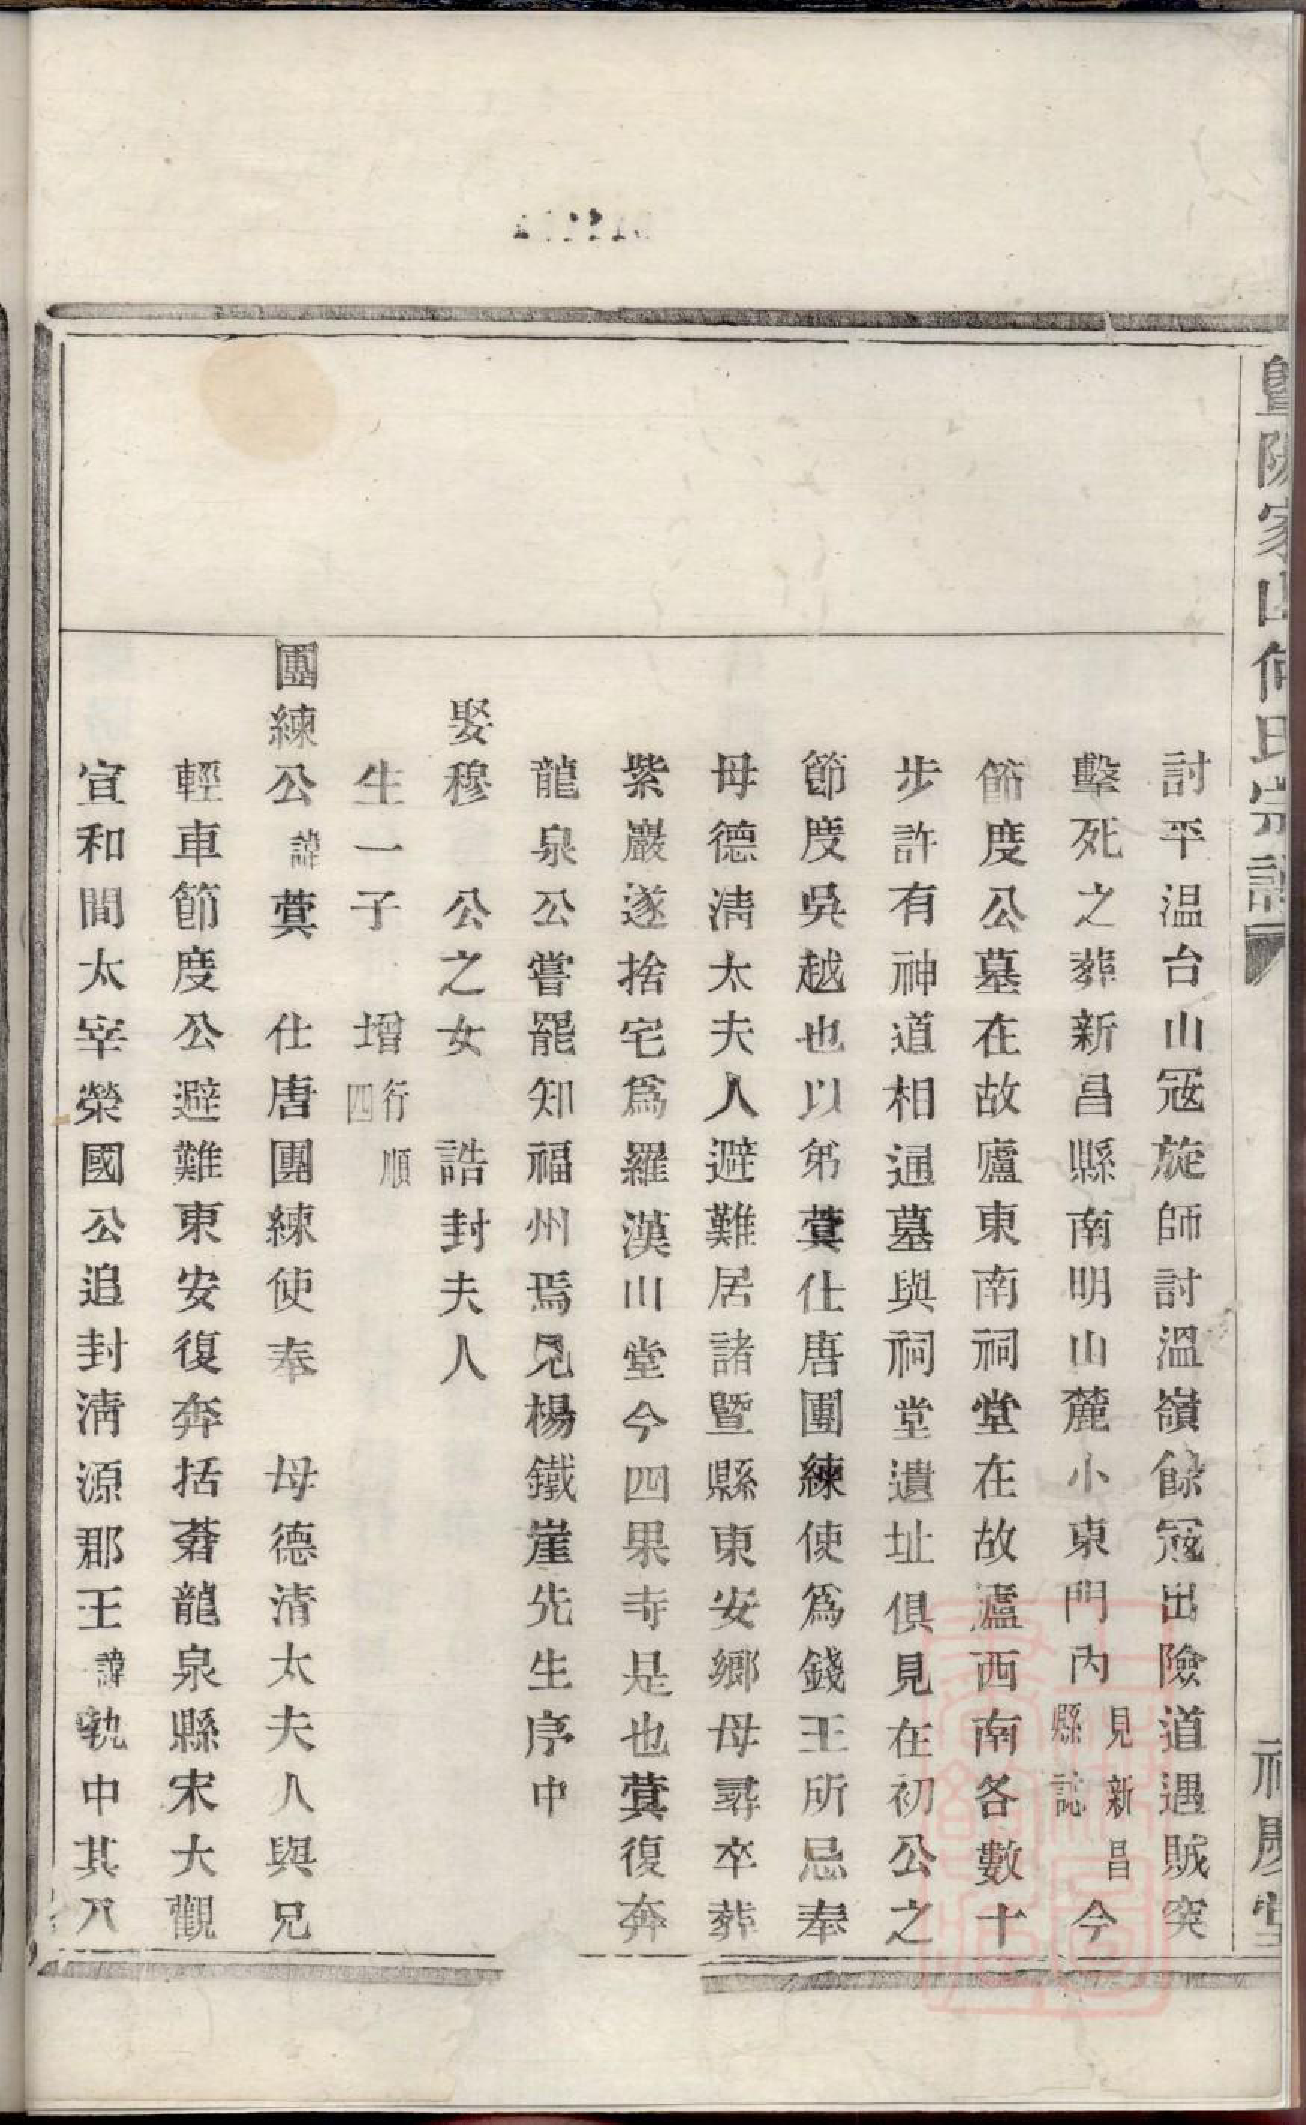 暨陽家山何氏宗譜
討平温台山冦旋師討溫嶺餘冦出險道遇賊突
擊死之葬新昌縣南明山麓小東門內見新昌縣誌今
節度公墓在故廬東南祠堂在故廬西南各數十
步許有神道相通墓與祠堂遺址俱見在初公之
節度吳越也以弟蓂仕唐團練使爲錢王所忌奉
母德淸太夫人避難居諸暨縣東安鄉母尋卒葬
紫巖遂捨宅爲羅漢山堂今四果寺是也蓂復奔
龍泉公嘗罷知福州焉見楊鐵崖先生序中
娶穆 公之女 誥封夫人
生一子 增行順四
團練公諱蓂 仕唐團練使奉 母德清太夫人與兄
輕車節度公避難東安復奔括蒼龍泉縣宋大觀
宣和間太宰榮國公追封淸源郡王諱執中其八